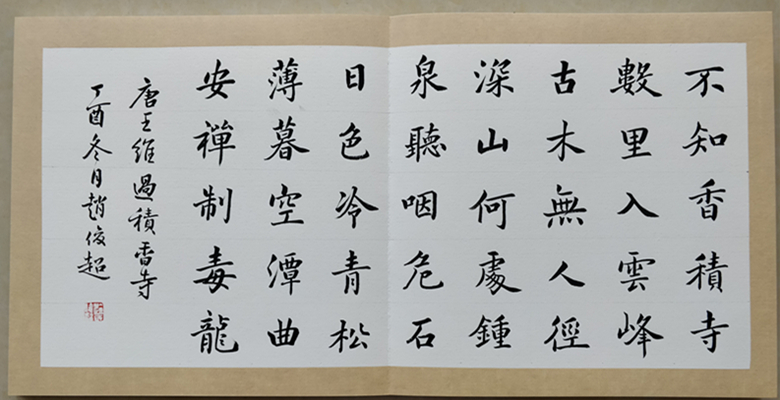 不知香積寺
數里入雲峰
古木無人徑
深山何處鍾
泉聽咽危石
日色冷青松
薄暮空潭曲
安禪制毒龍
唐王維過積香寺
丁酉冬月趙俊超